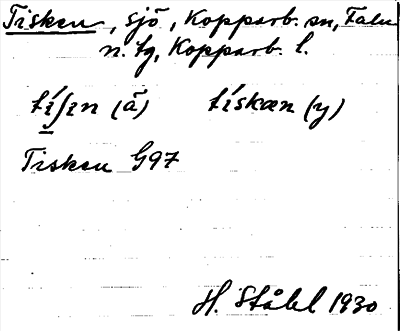 Tisken, sjö, Kopparb. sn, Falu
n. tg, Kopparb. l.
tí̱ʃin (ä) tískæn (y)
Tisken G97
H. Ståhl 1930